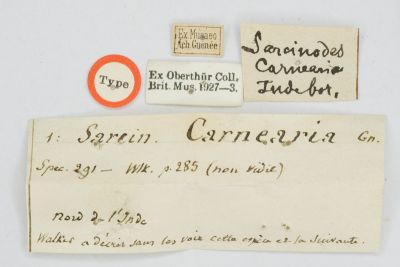 Ex Musaeo
Ach. Guenée
Type
Ex Oberthür Coll.
Brit. Mus. 1927—3.
Sarcinodes
Carnearia
Inde bor.
1: Sarcin. Carnearia Gn.
Spec. 291 — Wlk. p. 285 (non vidit)
nord de l'Inde
Walker a décrit sans les voir cette espèce et la suivante.